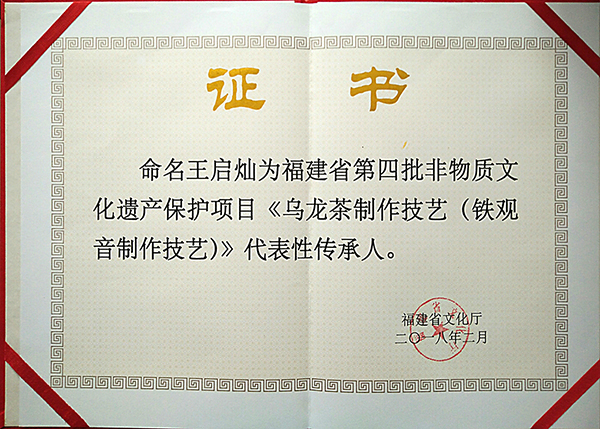 证书
命名王启灿为福建省第四批非物质文
化遗产保护项目《乌龙茶制作技艺（铁观
音制作技艺）》代表性传承人。
福建省文化厅
二〇一八年二月